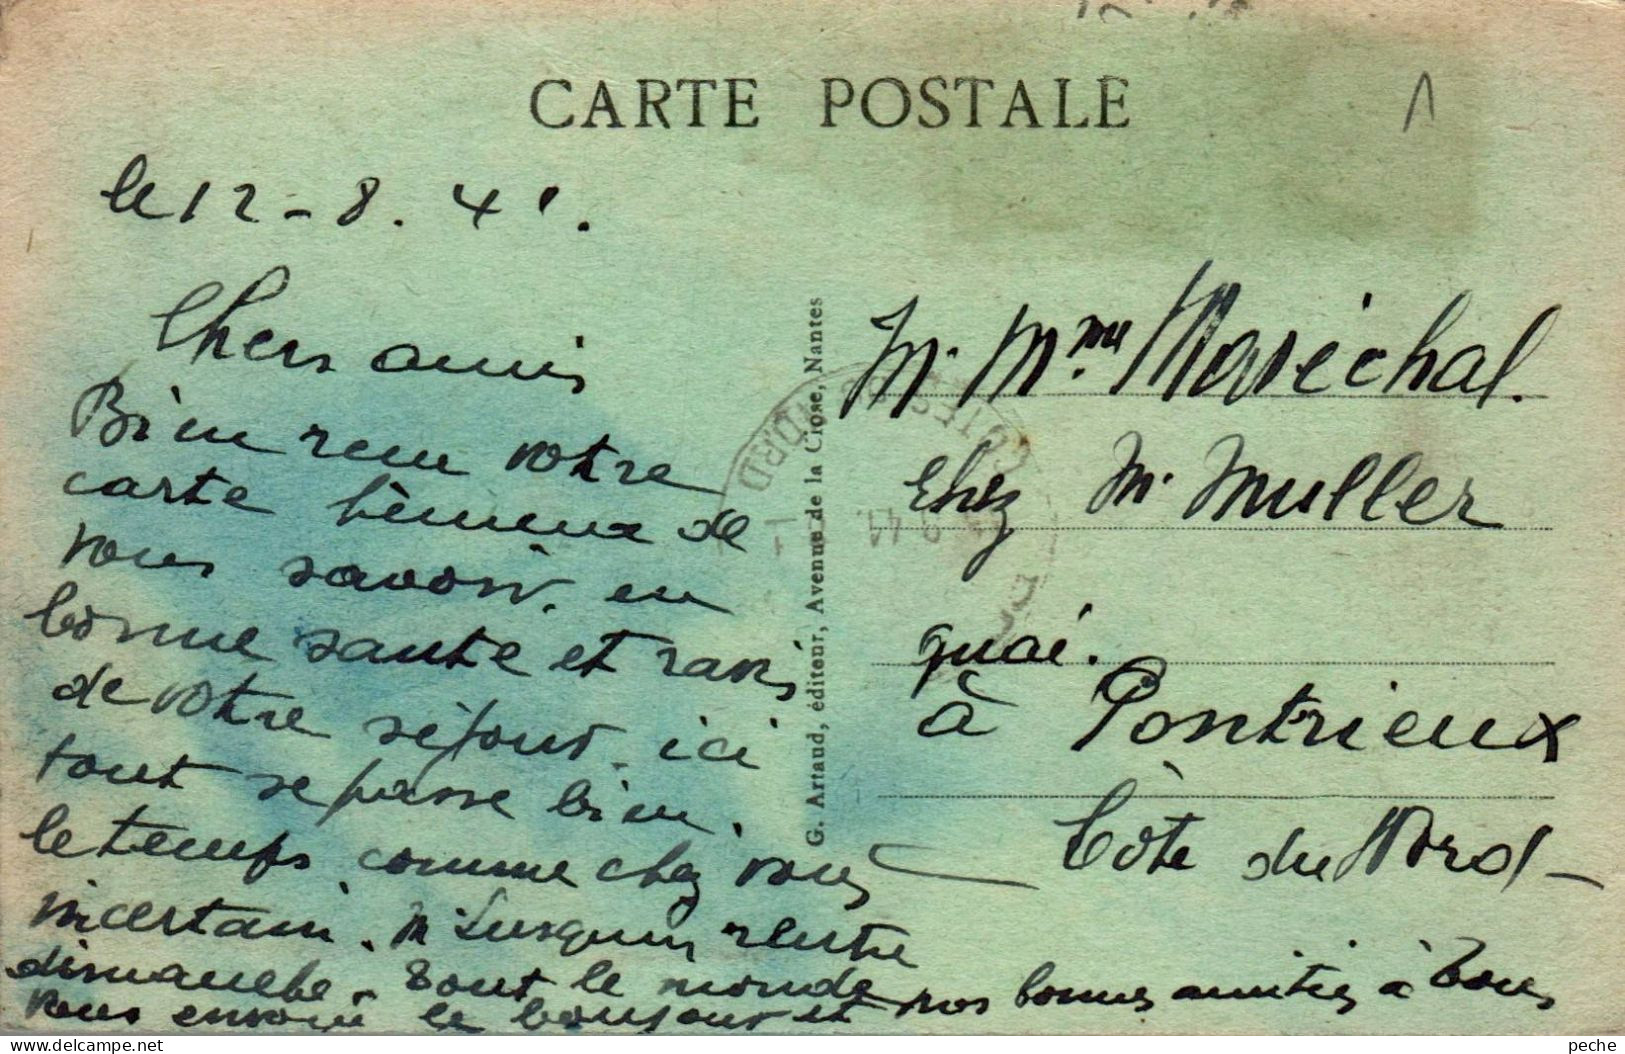 CARTE POSTALE
le 12 - 8. 41.
Chers amis
Bien reçu votre
carte heureux de
vous savoir en
bonne santé et ravis
de votre séjour. ici
tout se passe bien.
le temps comme chez vous
incertain. M. rentre
dimanche. Tout le monde
vous envoie le bonjour et nos bonnes amitiés à Tous
G. Artaud, éditeur, Avenue de la Close, Nantes
M. Mme Maréchal.
chez M. Muller
quai.
à Pontrieux
Côte du Nord
COTES DU NORD
8 41
delcampe.net
peche